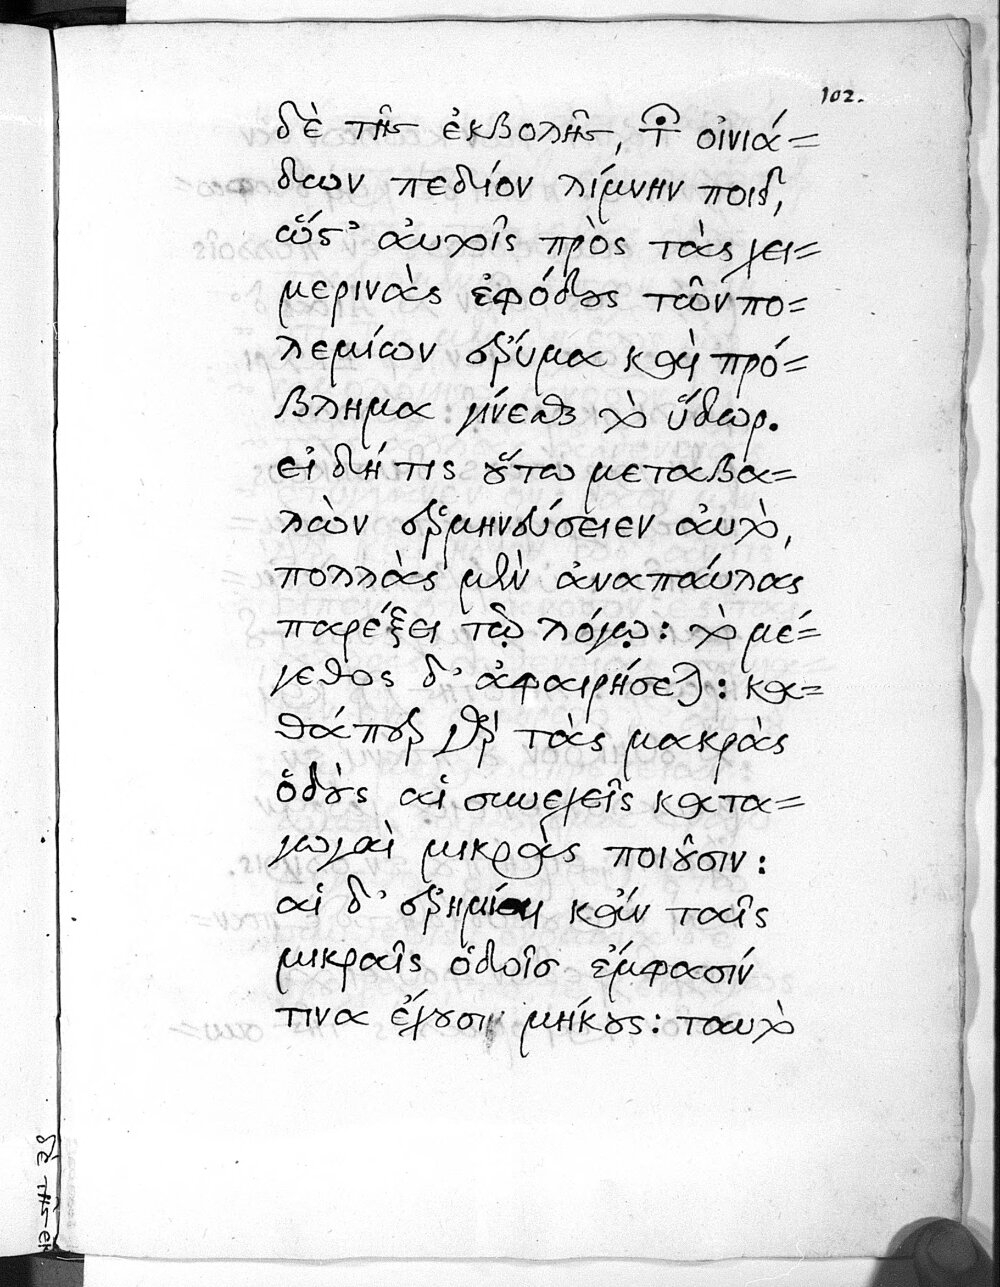 102.
δὲ τῆς ἐκβολῆς, τὸ οἰνιά=
δων πεδίον λίμνην ποιεῖ,
ὥστ' αὐτοῖς πρὸς τὰς χει=
μερινὰς ἐφόδους τῶν πο=
λεμίων ἔρυμα καὶ πρό=
βλημα γίνεσθαι τὸ ὕδωρ.
εἰ δή τις οὕτω μεταβα=
λὼν ἑρμηνεύσειεν αὐτὸ,
πολλὰς μὲν ἀναπαύλας
παρέξει τῷ λόγῳ: τὸ μέ=
γεθος δ' ἀφαιρήσεται: κα=
θάπερ γὰρ τὰς μακρὰς
ὁδοὺς αἱ συνεχεῖς κατα=
γωγαὶ μικρὰς ποιοῦσιν:
αἱ δ' ἐρημίαι κἀν ταῖς
μικραῖς ὁδοῖς ἔμφασίν
τινα ἔχουσι μήκους: ταυτὸ
δὲ τῆς ἐκ